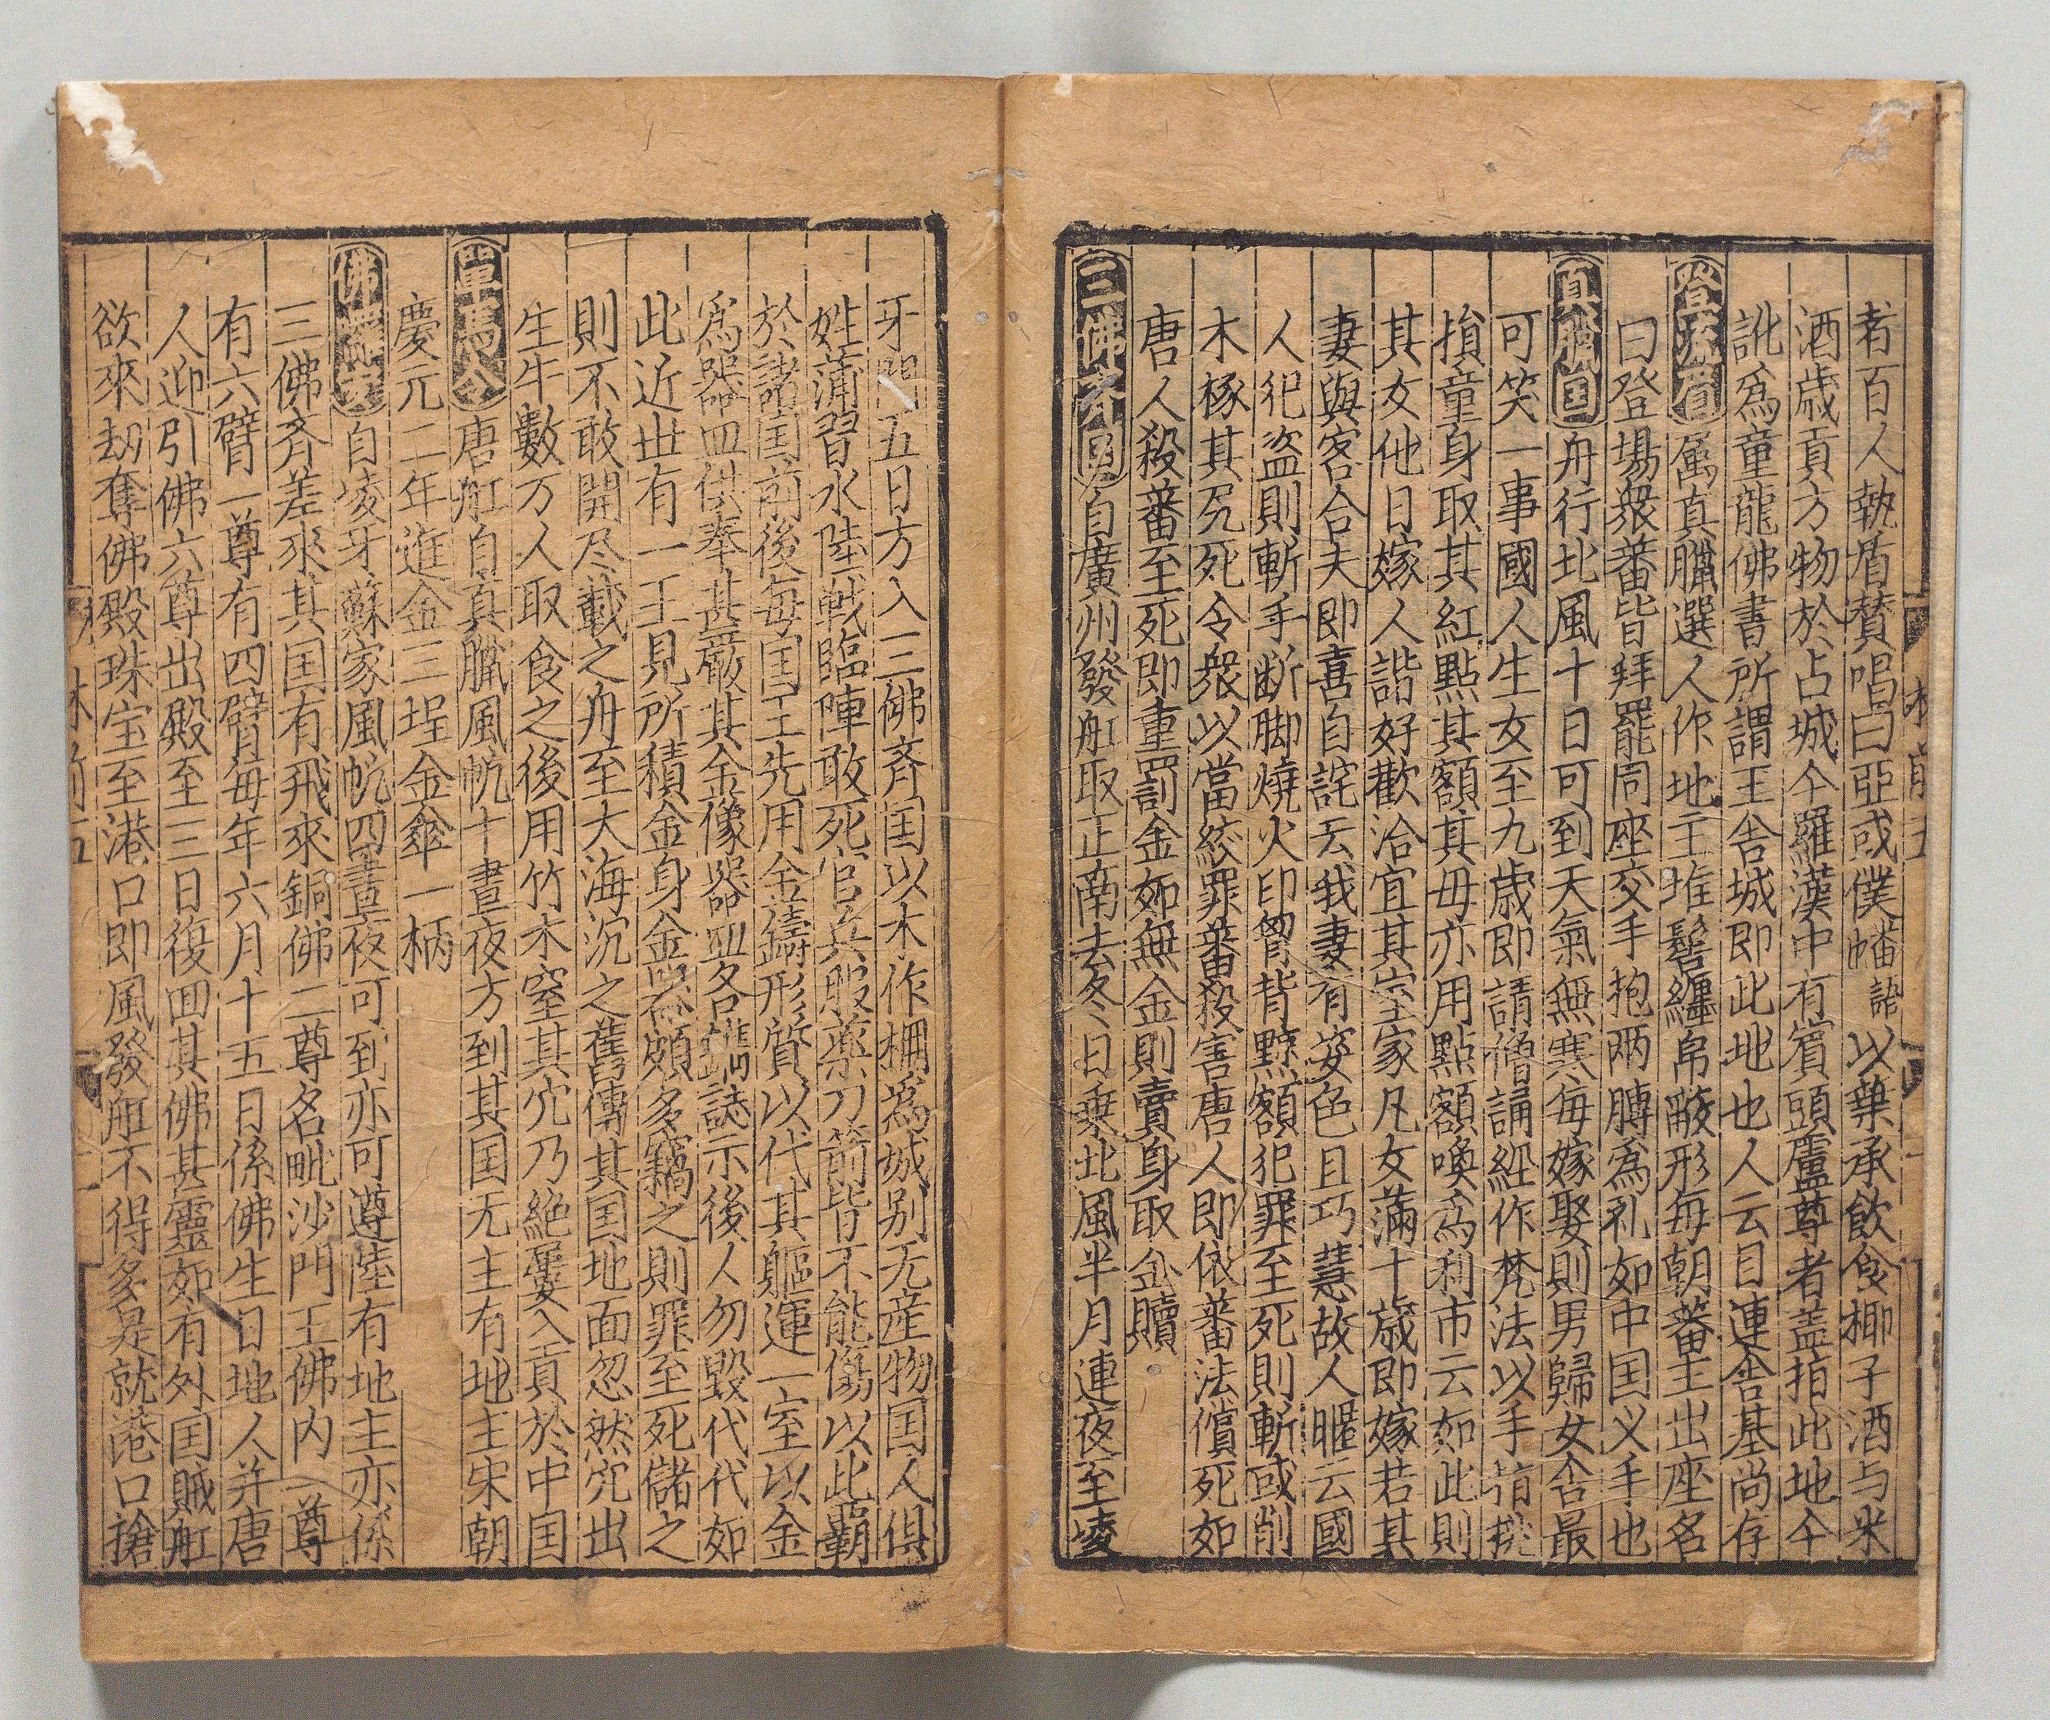 者百人執盾賛唱曰亞或僕以葉承飲食椰子酒与米
酒歳貢方物於占城今羅漢中有賓頭盧尊者盖指此地今
訛爲童龍佛書所謂王舍城即此地也人云目連舍基尚存
登流眉属真臘選人作地主堆髻纏帛蔽形每朝蕃主出座名
曰登場衆蕃皆拜罷同座交手抱两膊爲礼如中国义手也
真臘国舟行北風十日可到天氣無寒每嫁娶則男歸女舍最
可笑一事國人生女至九歳即請僧誦經作梵法以手指挑
損童身取其紅點其額其母亦用點額喚爲利市云如此則
其女他日嫁人諧好歡洽宜其室家凡女滿十歳即嫁若其
妻與客合夫即喜自詫云我妻有姿色且巧慧故人暱云國
人犯盗則斬手断脚燒火印胷背黥額犯罪至死則斬或削
木椓其尻死令衆以當絞罪蕃殺害唐人即依蕃法償死如
唐人殺蕃至死即重罰金如無金則賣身取金贖
三佛齊国自廣州發舡取正南去冬日乗北風半月連夜至凌
牙門五日方入三佛斉国以木作栅爲城别无産物国人俱
姓蒲習水陸戦臨陣敢死官兵服藥刀箭皆不能傷以此覇
於諸国前後每国王先用金鑄形質以代其軀運一室以金
爲器皿供奉甚嚴其金像器皿各鐫誌示後人勿毀代代如
此近世有一王見所積金身金器頗多竊之則罪至死儲之
則不敢開尽載之舟至大海沉之舊傳其国地面忽然穴出
生牛數万人取食之後用竹木窒其穴乃絶屢入貢於中国
單馬令唐舡自真臘風帆十晝夜方到其国无主有地主宋朝
慶元二年進金三埕金傘一柄
佛囉安自凌牙蘇家風帆四晝夜可到亦可遵陸有地主亦係
三佛斉差來其国有飛來銅佛二尊名毗沙門王佛内一尊
有六臂一尊有四臂每年六月十五日係佛生日地人并唐
人迎引佛六尊出殿至三日復囬其佛甚靈如有外国賊舡
欲來劫奪佛殿珠宝至港口即風發舡不得多是就港口搶